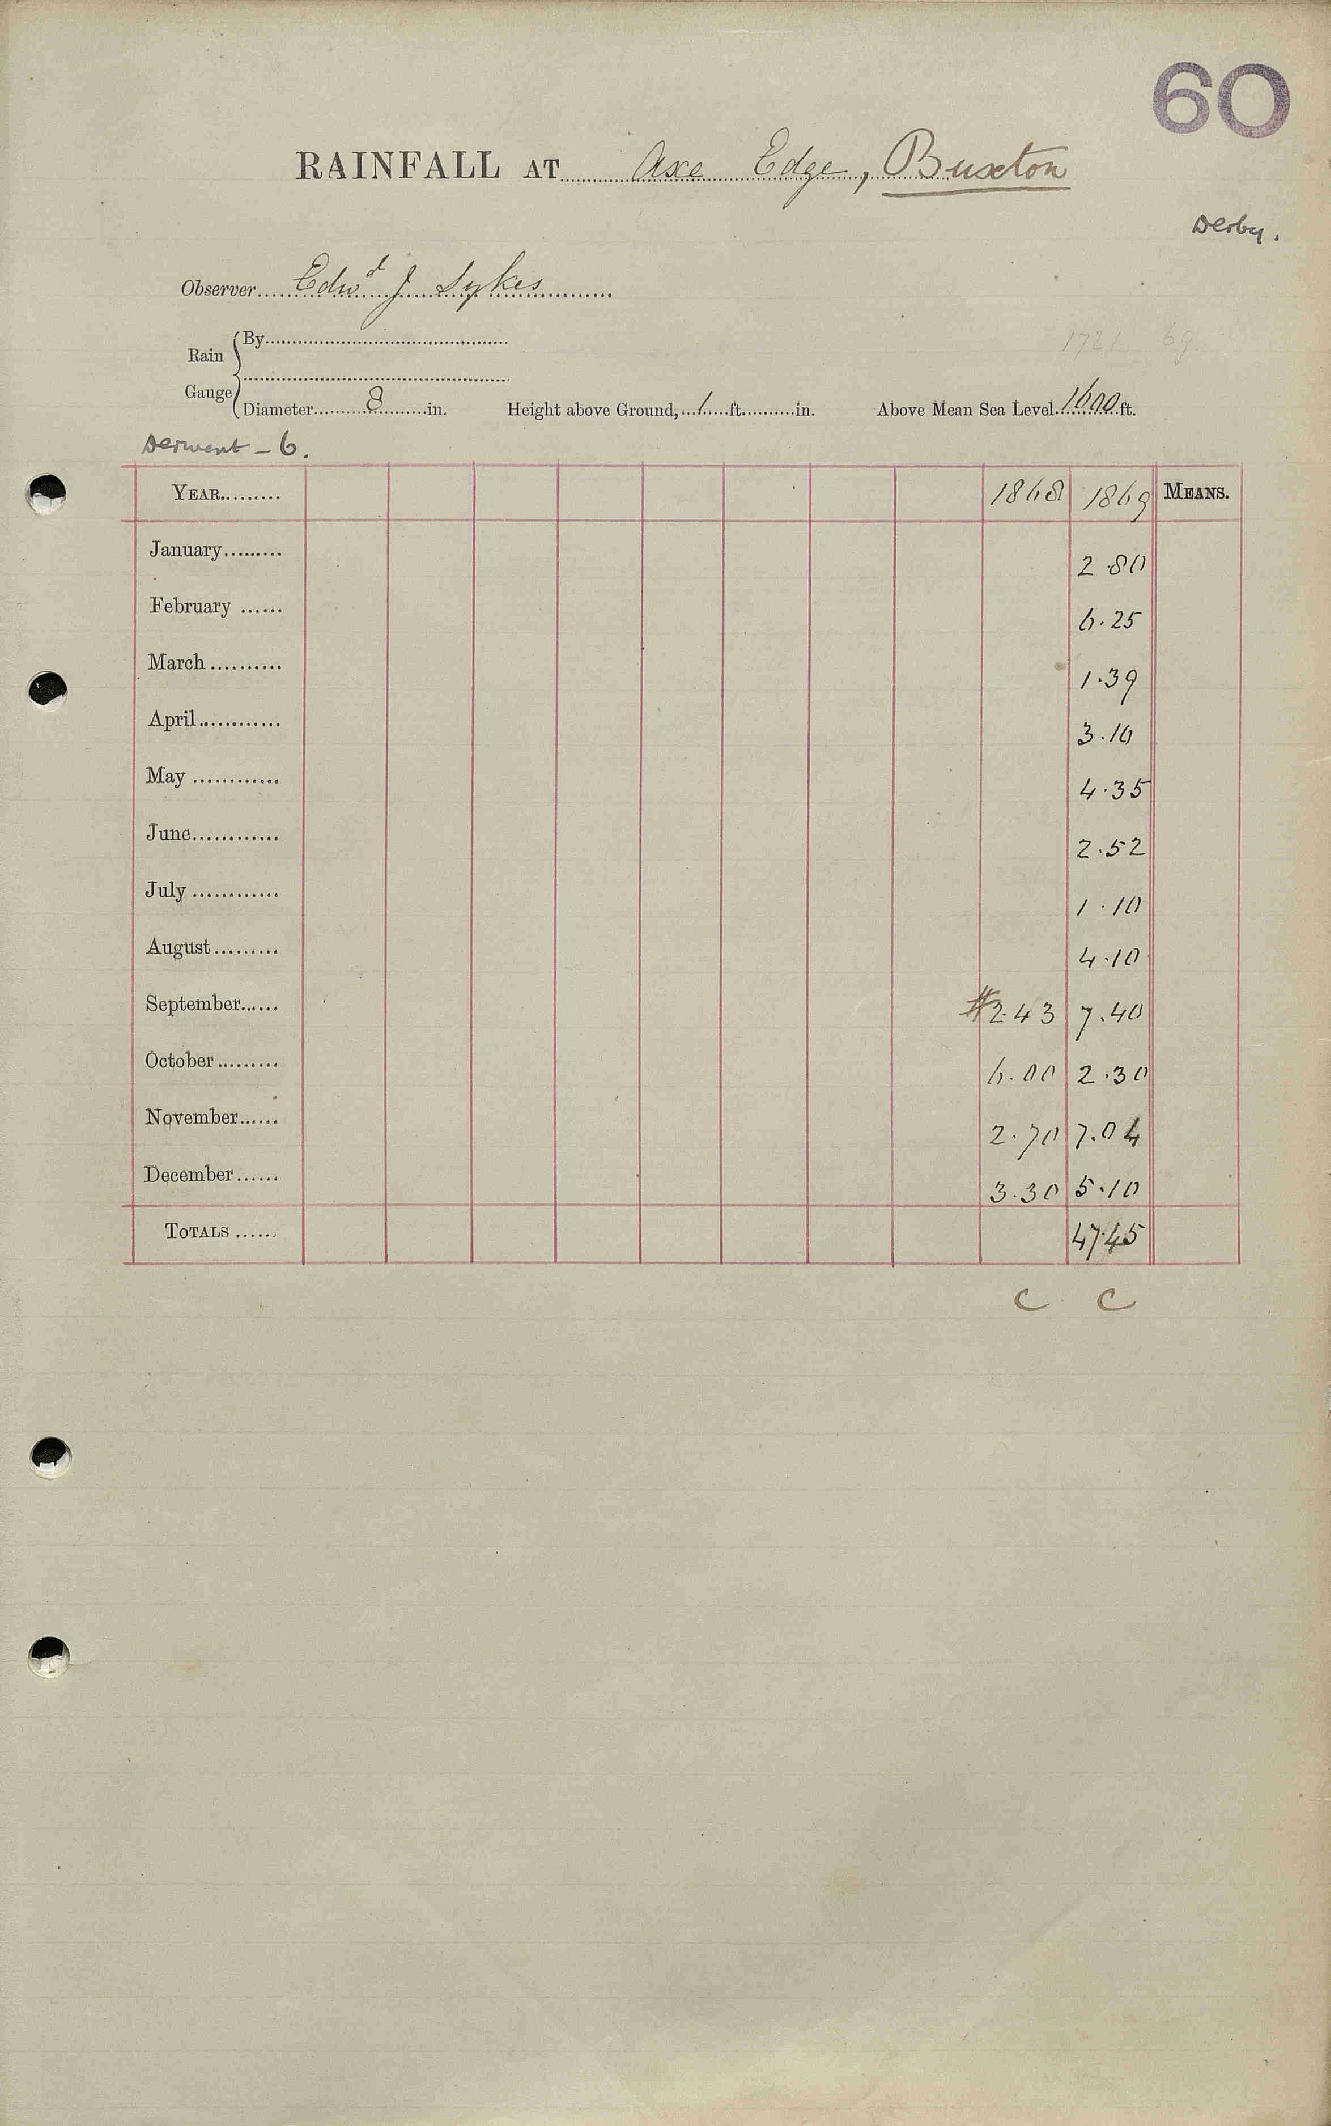 60
RAINFALL AT Axe Edge, Buxton
Derby.
Observer Edwd J Sykes
Rain Gauge
By
Diameter 8 in. Height above Ground, 1 ft. in. Above Mean Sea Level 1600 ft.
Derwent - 6.
YEAR 1868 1869 MEANS.
January 2.80
February 6.25
March 1.39
April 3.10
May 4.35
June 2.52
July 1.10
August 4.10
September #2.43 7.40
October 6.00 2.30
November 2.70 7.04
December 3.30 5.10
TOTALS 47.45
C C